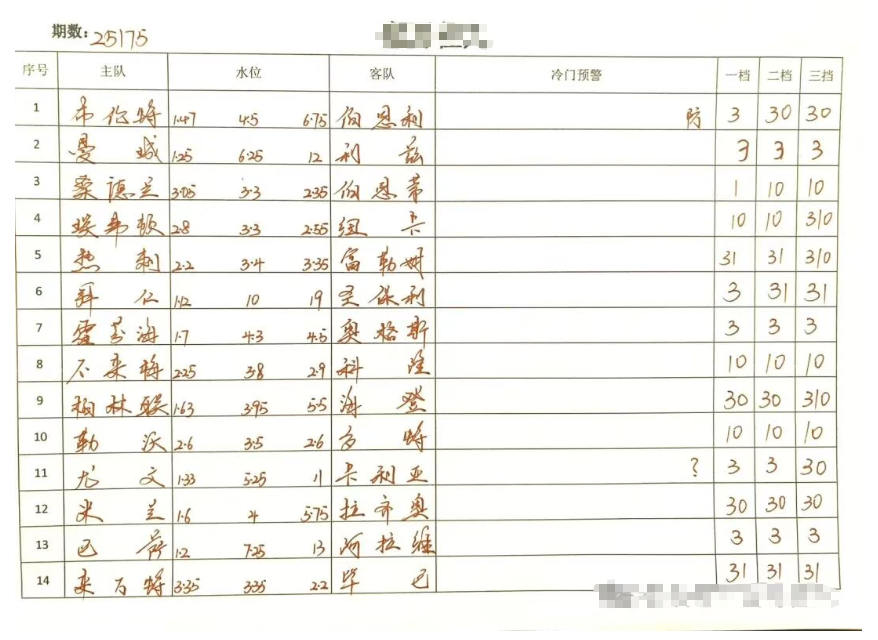 期数: 25175
序号 主队 水位 客队 冷门预警 一档 二档 三挡
1 布伦特 1.47 4.5 6.75 伯恩利 防 3 30 30
2 曼城 1.25 6.25 12 利兹 3 3 3
3 桑德兰 3.05 3.3 2.35 伯恩茅 1 10 10
4 埃弗顿 2.8 3.3 2.55 纽卡 10 10 310
5 热刺 2.2 3.4 3.35 富勒姆 31 31 310
6 拜仁 1.12 10 19 圣保利 3 31 31
7 霍芬海 1.7 4.3 4.5 奥格斯 3 3 3
8 不来梅 2.25 3.8 2.9 科隆 10 10 10
9 柏林联 1.63 3.95 5.5 海登 30 30 310
10 勒沃 2.6 3.5 2.6 多特 10 10 10
11 尤文 1.33 5.25 11 卡利亚 ? 3 3 30
12 米兰 1.6 4 5.75 拉齐奥 30 30 30
13 巴萨 1.2 7.25 13 阿拉维 3 3 3
14 莱万特 3.35 3.35 2.2 毕巴 31 31 31